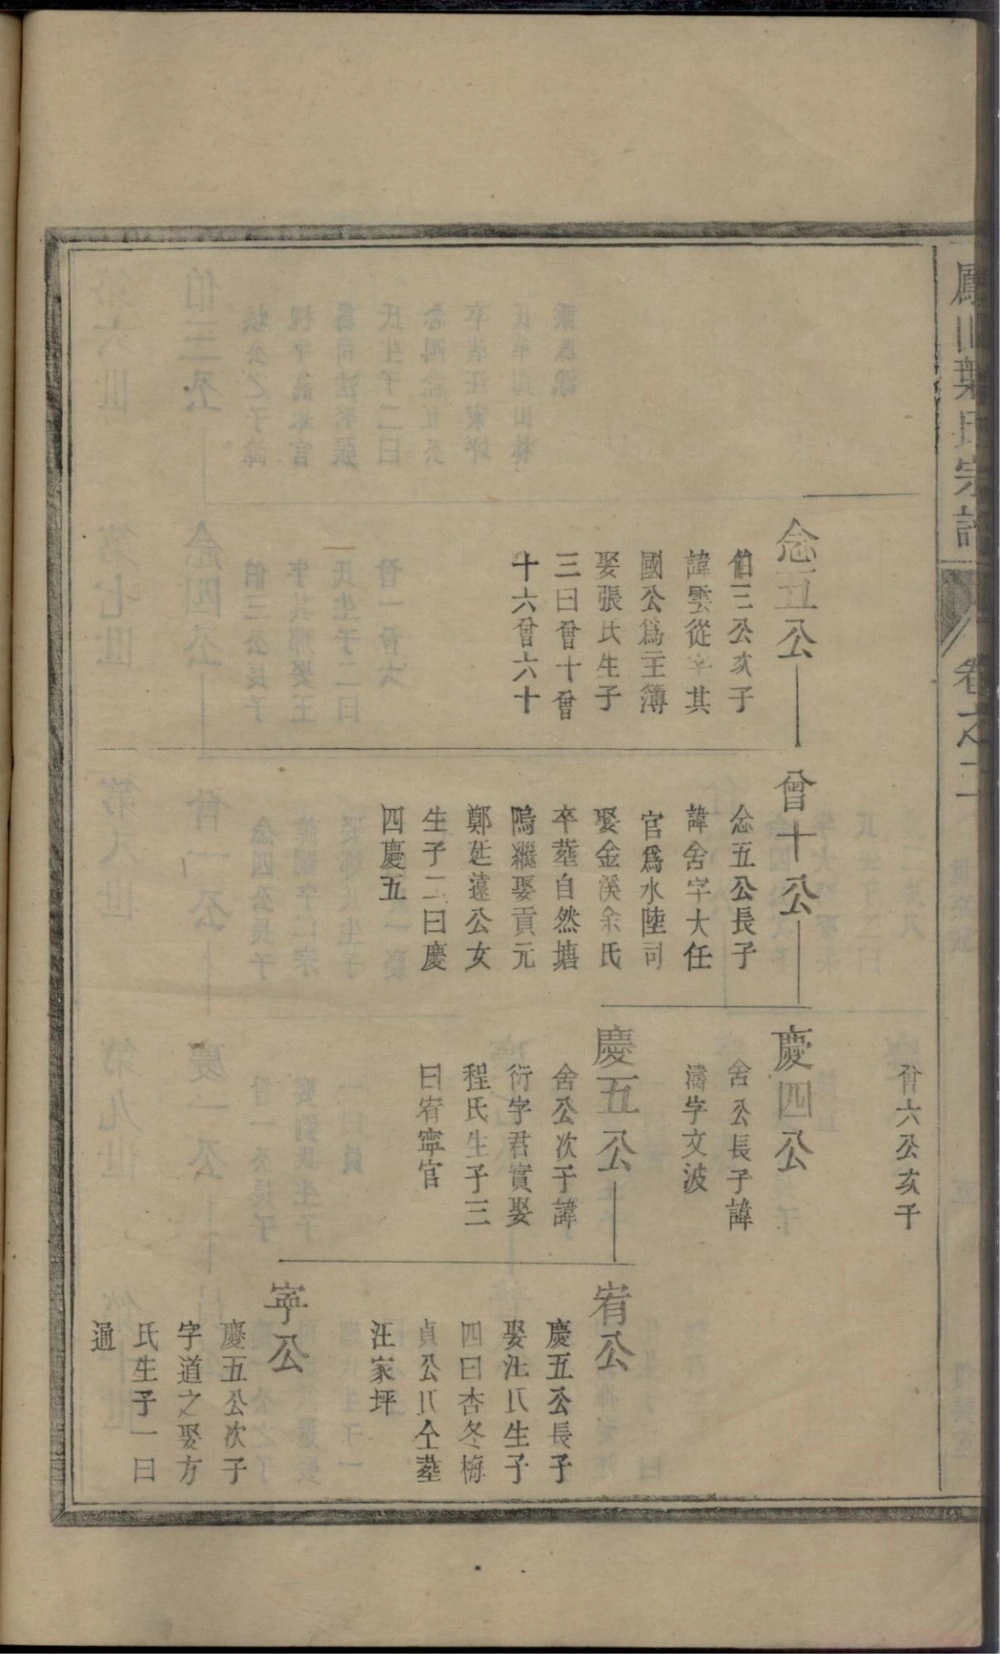 鳳山葉氏宗譜
卷之二
念五公
伯三公次子
諱雲從字其
國公爲主簿
娶張氏生子
三曰曾十曾
十六曾六十
曾十公
念五公長子
諱舍字大任
官爲水陸司
娶金溪余氏
卒塟自然塘
塢繼娶貢元
鄭廷遠公女
生子二曰慶
四慶五
曾六公次子
慶四公
舍公長子諱
濤字文波
慶五公
舍公次子諱
衍字君實娶
程氏生子三
曰宥寧官
宥公
慶五公長子
娶汪氏生子
四曰杏冬梅
貞公氏仝塟
汪家坪
寧公
慶五公次子
字道之娶方
氏生子一曰
通